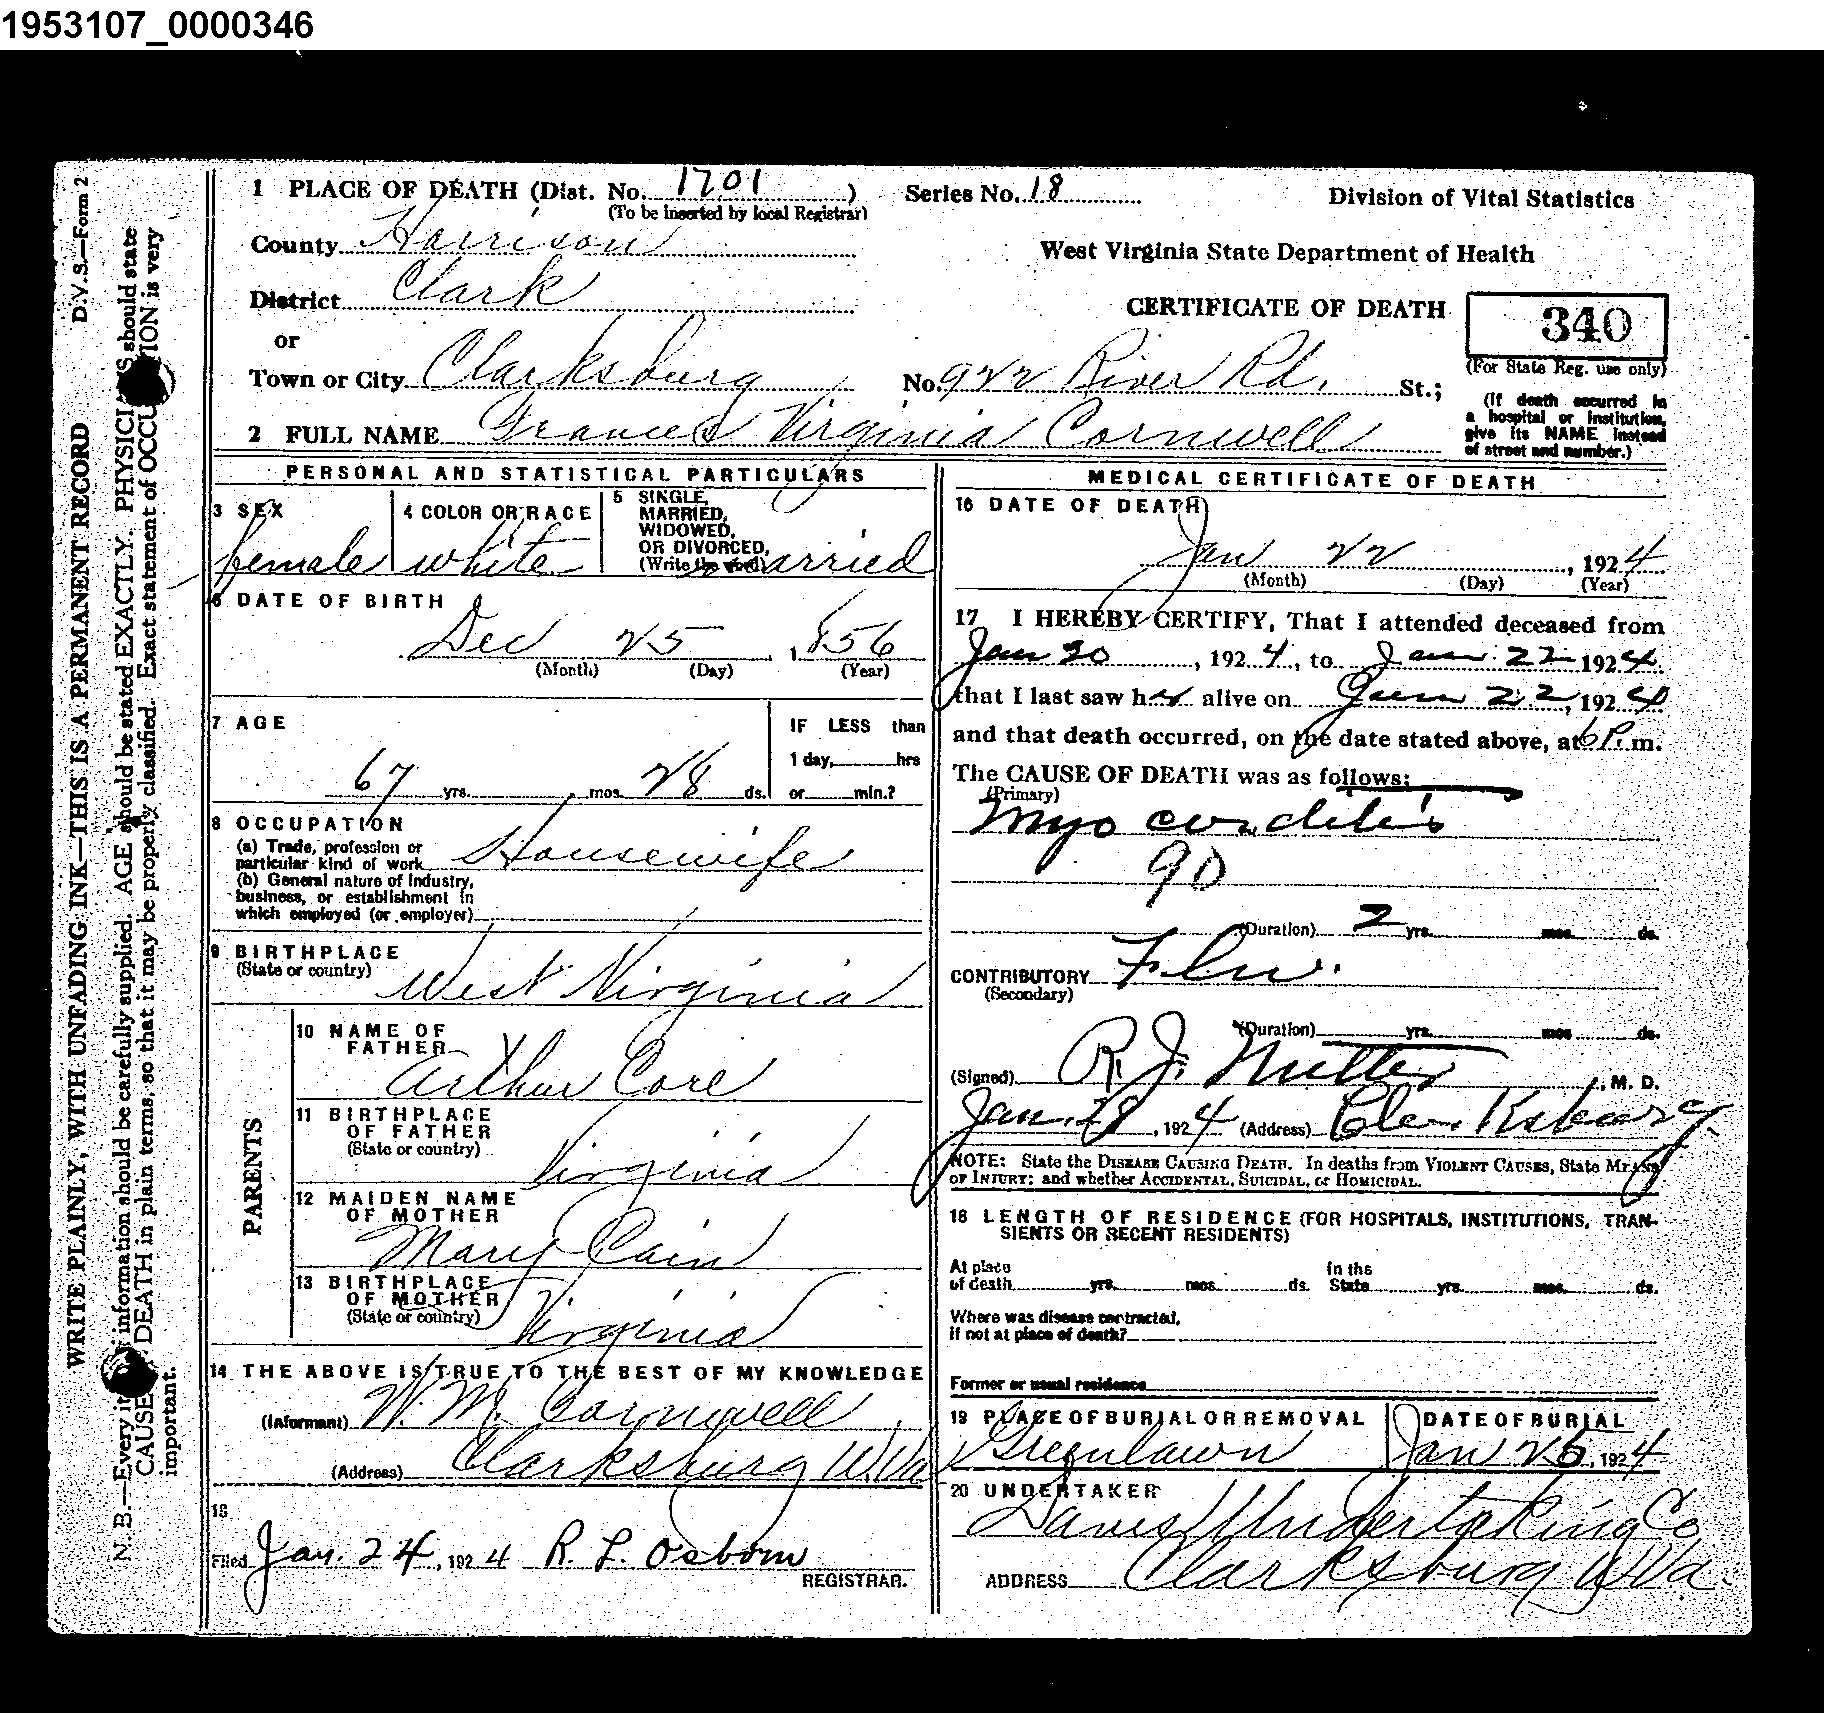 1953107_0000346
1 PLACE OF DEATH (Dist. No. 1701 ) Series No. 18 Division of Vital Statistics
(To be inserted by local Registrar)
County Harrison West Virginia State Department of Health
District Clark CERTIFICATE OF DEATH 340
or
Town or City Clarksburg No. 922 River Rd. St.; (For State Reg. use only)
(If death occurred in a hospital or institution, give its NAME instead of street and number.)
2 FULL NAME Frances Virginia Cornwell
PERSONAL AND STATISTICAL PARTICULARS
3 SEX female
4 COLOR OR RACE white
5 SINGLE, MARRIED, WIDOWED, OR DIVORCED, (Write the word) married
6 DATE OF BIRTH
Dec 25, 1856
(Month) (Day) (Year)
7 AGE
67 yrs. mos. 28 ds.
IF LESS than
1 day, hrs
or min.?
8 OCCUPATION
(a) Trade, profession or
particular kind of work Housewife
(b) General nature of industry,
business, or establishment in
which employed (or employer)
9 BIRTHPLACE
(State or country) West Virginia
PARENTS
10 NAME OF
FATHER
Arthur Core
11 BIRTHPLACE
OF FATHER
(State or country) Virginia
12 MAIDEN NAME
OF MOTHER
Mary Cain
13 BIRTHPLACE
OF MOTHER
(State or country) Virginia
14 THE ABOVE IS TRUE TO THE BEST OF MY KNOWLEDGE
(Informant) W. M. Cornwell
(Address) Clarksburg W.Va
15
Filed Jan. 24, 1924 R. L. Osborn
REGISTRAR.
MEDICAL CERTIFICATE OF DEATH
16 DATE OF DEATH
Jan 22, 1924
(Month) (Day) (Year)
17 I HEREBY CERTIFY, That I attended deceased from
Jan 20, 1924, to Jan 22 1924
that I last saw her alive on Jan 22, 1924
and that death occurred, on the date stated above, at 6 P. m.
The CAUSE OF DEATH was as follows:
(Primary)
Myo carditis
90
(Duration) 2 yrs. mos. ds.
CONTRIBUTORY Flu.
(Secondary)
(Duration) yrs. mos. ds.
(Signed) R. J. Nutter, M. D.
Jan. 1924 (Address) Clarksburg
NOTE: State the DISEASE CAUSING DEATH. In deaths from VIOLENT CAUSES, State MEANS
OF INJURY; and whether ACCIDENTAL, SUICIDAL, or HOMICIDAL.
18 LENGTH OF RESIDENCE (FOR HOSPITALS, INSTITUTIONS, TRAN-
SIENTS OR RECENT RESIDENTS)
At place In the
of death yrs. mos. ds. State yrs. mos. ds.
Where was disease contracted,
if not at place of death?
Former or usual residence
19 PLACE OF BURIAL OR REMOVAL DATE OF BURIAL
Greenlawn Jan 26, 1924
20 UNDERTAKER
Davis Undertaking Co
ADDRESS Clarksburg W Va.
D.V.S.—Form 2
WRITE PLAINLY, WITH UNFADING INK—THIS IS A PERMANENT RECORD
N. B.—Every it information should be carefully supplied. AGE should be stated EXACTLY. PHYSICI S should state
CAUSE DEATH in plain terms, so that it may be properly classified. Exact statement of OCCU TION is very
important.